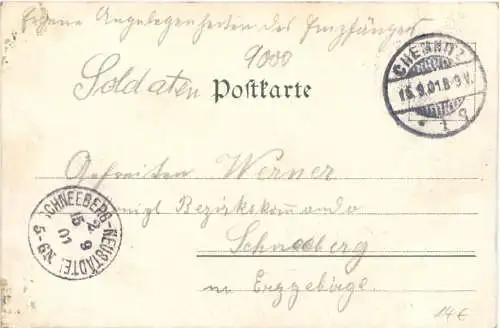 Eigene Angelegenheiten des Empfängers
9000
Soldaten Postkarte
CHEMNITZ
15.9.01.8-9V.
* 1 g
Gefreiten Werner
Königl Bezirkskommando
Schneeberg
im Erzgebirge.
SCHNEEBERG-NEUSTÄDTEL
15 9
01
5-6N
14€